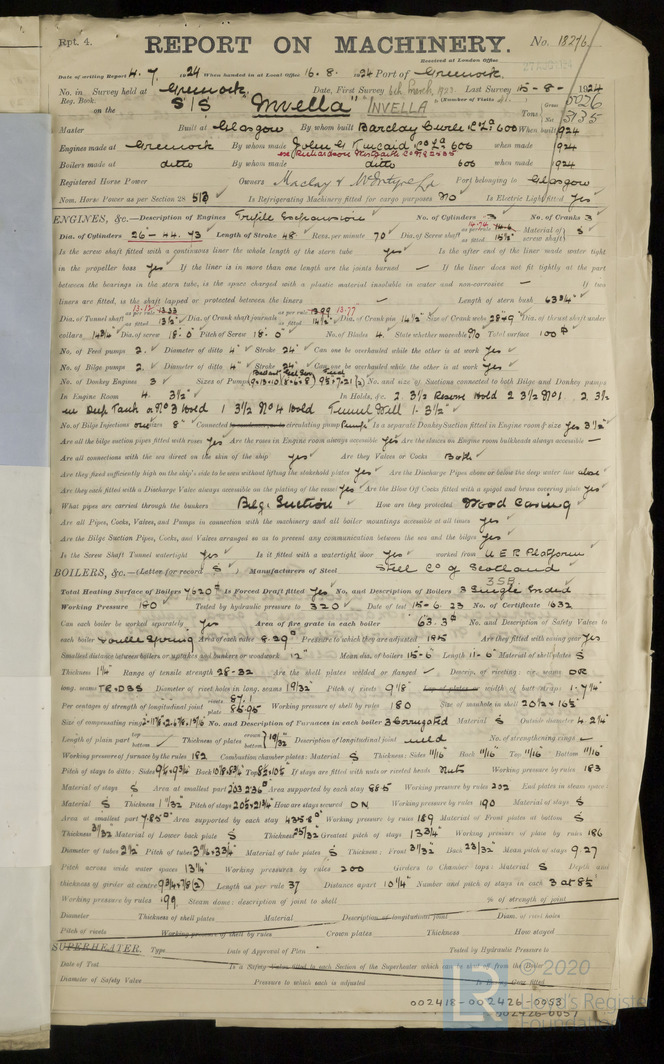 Rpt. 4.
REPORT ON MACHINERY.
No. 18276
Received at London Office
Date of writing Report 4. 7. 1924 When handed in at Local Office 16. 8. 1924 Port of Greenock
No. in Survey held at Greenock Date, First Survey 6th March 1923 Last Survey 15-8-1924
Reg. Book. (Number of Visits
on the S/S "Invella" INVELLA Tons Gross 5026 Net 3135
Master Built at Glasgow By whom built Barclay Curle & Co Ld 600 When built 1924
Engines made at Greenock By whom made John G Kincaid & Co Ld 606 when made 1924
Boilers made at ditto By whom made ditto 606 when made 1924
Registered Horse Power Owners Maclay & McIntyre Ld Port belonging to Glasgow
Nom. Horse Power as per Section 28 Is Refrigerating Machinery fitted for cargo purposes No Is Electric Light fitted Yes
ENGINES, &c.—Description of Engines Triple Expansion No. of Cylinders 3 No. of Cranks 3
Dia. of Cylinders 26-44-73 Length of Stroke 48 Revs. per minute 70 Dia. of Screw shaft as per rule 14.76 as fitted 15½" Material of screw shaft S
Is the screw shaft fitted with a continuous liner the whole length of the stern tube yes Is the after end of the liner made water tight
in the propeller boss yes If the liner is in more than one length are the joints burned — If the liner does not fit tightly at the part
between the bearings in the stern tube, is the space charged with a plastic material insoluble in water and non-corrosive — If two
liners are fitted, is the shaft lapped or protected between the liners — Length of stern bush 63¾"
Dia. of Tunnel shaft as per rule 13.12 as fitted 13½" Dia. of Crank shaft journals as per rule 13.77 as fitted 14½" Dia. of Crank pin 14½" Size of Crank webs 28×9 Dia. of thrust shaft under
collars 14¾" Dia. of screw 18'. 0" Pitch of Screw 18'. 0" No. of Blades 4. State whether moveable No Total surface 100
No. of Feed pumps 2. Diameter of ditto 4" Stroke 24" Can one be overhauled while the other is at work yes
No. of Bilge pumps 2. Diameter of ditto 4" Stroke 24" Can one be overhauled while the other is at work yes
No. of Donkey Engines 3 Sizes of Pumps No. and size of Suctions connected to both Bilge and Donkey pumps
In Engine Room 4. 3½" In Holds, &c. 2 3½ Reserve Hold 2 3½ No 1 2 3½
in Deep Tank & No 3 Hold 1 3½ No 4 Hold Tunnel Well 1-3½"
No. of Bilge Injections one sizes 8" Connected to circulating pump Is a separate Donkey Suction fitted in Engine room & size yes 3½"
Are all the bilge suction pipes fitted with roses yes Are the roses in Engine room always accessible yes Are the sluices on Engine room bulkheads always accessible —
Are all connections with the sea direct on the skin of the ship yes Are they Valves or Cocks Both
Are they fixed sufficiently high on the ship's side to be seen without lifting the stokehold plates yes Are the Discharge Pipes above or below the deep water line above
Are they each fitted with a Discharge Valve always accessible on the plating of the vessel yes Are the Blow Off Cocks fitted with a spigot and brass covering plate yes
What pipes are carried through the bunkers Bilge Suction How are they protected Wood Casing
Are all Pipes, Cocks, Valves, and Pumps in connection with the machinery and all boiler mountings accessible at all times yes
Are the Bilge Suction Pipes, Cocks, and Valves arranged so as to prevent any communication between the sea and the bilges yes
Is the Screw Shaft Tunnel watertight yes Is it fitted with a watertight door yes worked from U E R Platform
BOILERS, &c.—(Letter for record S) Manufacturers of Steel Steel Co of Scotland
3SB.
Total Heating Surface of Boilers 7620 Is Forced Draft fitted yes No. and Description of Boilers 3 Single Ended
Working Pressure 180 Tested by hydraulic pressure to 320 Date of test 15-6-23 No. of Certificate 1632
Can each boiler be worked separately yes Area of fire grate in each boiler 63.3 No. and Description of Safety Valves to
each boiler Double Spring Area of each valve 8.29 Pressure to which they are adjusted 185 Are they fitted with easing gear yes
Smallest distance between boilers or uptakes and bunkers or woodwork 12" Mean dia. of boilers 15-6 Length 11-6 Material of shell plates S
Thickness 1¼" Range of tensile strength 28-32 Are the shell plates welded or flanged — Descrip. of riveting: cir. seams DR
long. seams TR.DBS Diameter of rivet holes in long. seams 19/32" Pitch of rivets 9⅛ width of butt straps 1-7¼"
Per centages of strength of longitudinal joint rivets 87.1 plate 85.95 Working pressure of shell by rules 180 Size of manhole in shell 20½×16½"
Size of compensating ring No. and Description of Furnaces in each boiler 3 Corrugated Material S Outside diameter 4.2¼"
Length of plain part top bottom Thickness of plates crown bottom 19/32 Description of longitudinal joint weld No. of strengthening rings
Working pressure of furnace by the rules 182 Combustion chamber plates: Material S Thickness: Sides 11/16 Back 11/16 Top 11/16 Bottom 11/16
Pitch of stays to ditto: Sides Back Top If stays are fitted with nuts or riveted heads Nuts Working pressure by rules 183
Material of stays S Area at smallest part Area supported by each stay 88.5 Working pressure by rules 202 End plates in steam space:
Material S Thickness 1 1/32 Pitch of stays How are stays secured DN Working pressure by rules 190 Material of stays S
Area at smallest part 7.85 Area supported by each stay Working pressure by rules 189 Material of Front plates at bottom S
Thickness 31/32 Material of Lower back plate S Thickness 25/32 Greatest pitch of stays 13¾" Working pressure of plate by rules 186
Diameter of tubes 2½" Pitch of tubes Material of tube plates S Thickness: Front 31/32" Back 23/32 Mean pitch of stays 9.27
Pitch across wide water spaces 13¼" Working pressures by rules 200 Girders to Chamber tops: Material S Depth and
thickness of girder at centre Length as per rule 37 Distance apart 10¼" Number and pitch of stays in each 3 at 8½
Working pressure by rules 199 Steam dome: description of joint to shell % of strength of joint
Diameter Thickness of shell plates Material Description of longitudinal joint Diam. of rivet holes
Pitch of rivets Working pressure of shell by rules Crown plates Thickness How stayed
SUPERHEATER. Type Date of Approval of Plan Tested by Hydraulic Pressure to
Date of Test Is a Safety Valve fitted to each Section of the Superheater which can be shut off from the Boiler
Diameter of Safety Valve Pressure to which each is adjusted Is Easing Gear fitted
002418-002426-0053
© 2020
LR Lloyd's Register Foundation